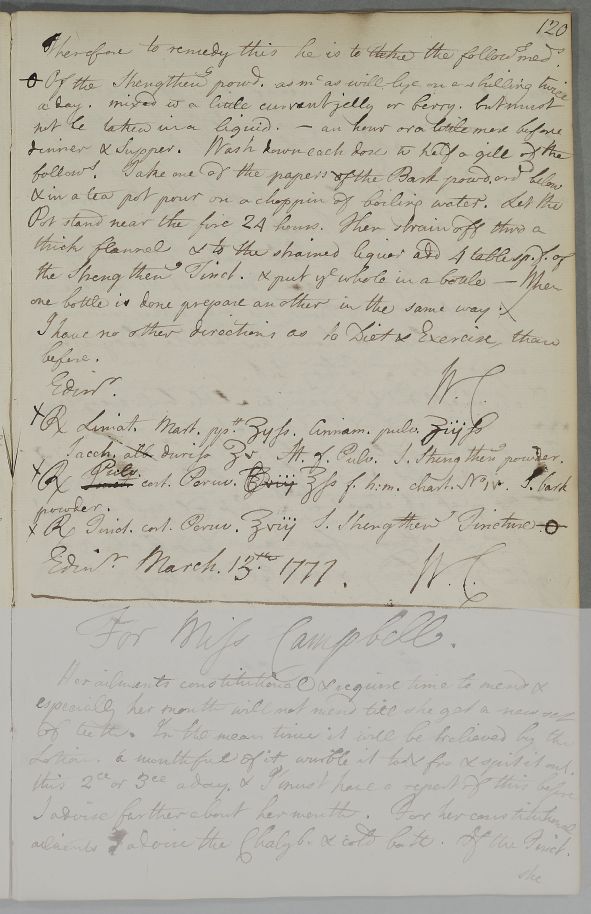 120
Therefore to remedy this he is to take the follow.g med.s
Of the Strengthen.g powd. as m.c as will lye on a shilling twice
a day. mixed w a little currant jelly or berry. but must
not be taken in a liquid. — an hour or a little more before
dinner & Supper. Wash down each dose w half a gill of the
follow.g. Take one of the papers of the Bark powd. ord.d below
& in a tea pot pour on a choppin of boiling water. Let the
Pot stand near the fire 24 hours. Then strain off thro a
thick flannel & to the strained liquor add 4 tablesp.f. of
the Strengthen.g Tinct. & put y.e whole in a bottle — When
one bottle is done prepare another in the same way.
I have no other directions as to Diet & Exercise, than
before.
Edin.r W.C.
℞ Limat. Mart. pp.t ʒyſs. Cinnam. pulv.
Sacch. alb duriss M. f. Pulv. S. Strengthen.g powder.
℞ Pulv. cort. Peruv. ℥ſs f. h: m. chart. N.o S. Bark
powder.
℞ Tinct. cort. Peruv. S. Strengthen.g Tincture.
Edin.r March. 13.th 1777. W.C.
For Miss Campbell.
Her ailments constitutional & require time to mend &
especially her mouth will not mend till she get a new set
of teeth. In the mean time it will be relieved by the
Lotion. a mouthful of it it to & fro & spit it out.
this 2.ce or 3.ce a day. & I must have a report of this before
I advise farther about her mouth. For her constitutional
ailments I advise the Chalyb. & cold bath. Of the Tinct.
she